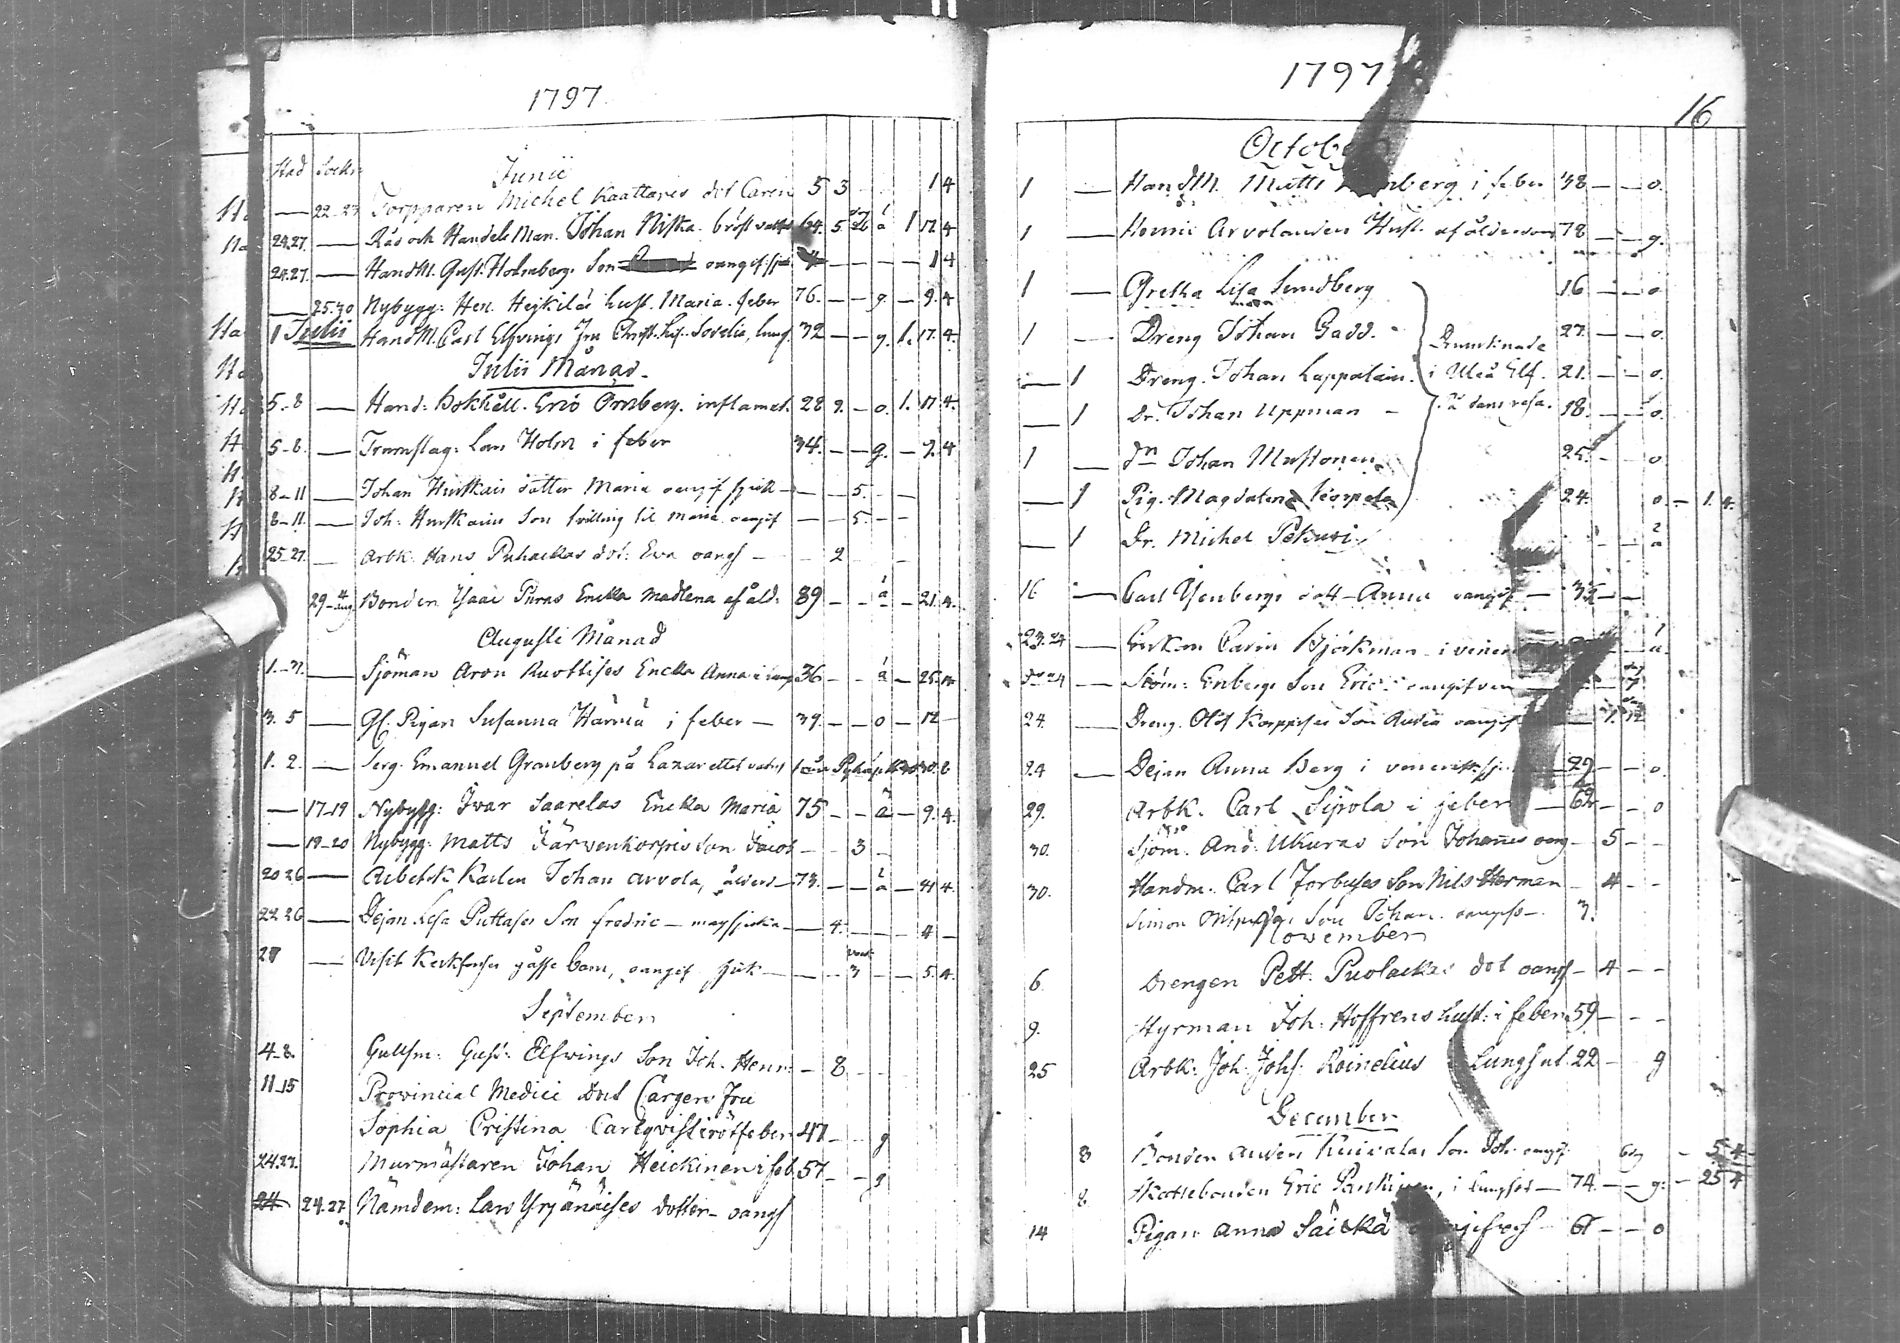 1797
Stad Sockn
Junii
22-23 Torpparen Michel Kaattaris dot Caren 5 3 1 4
24.27. Råd och Handels Man. Johan Niska. bröst 64. 5 26 á 1 17 4
24.27. HandM. Gust. Holmbergs Son oangif: sju 1 4
25.30 Nybygg: Hen. Heikiläs hust. Maria. feber 76. g. 9. 4
1 Julii HandM. Carl Elfvings Fru Christ. Lovis. lungs 32 g. 1. 17. 4.
Julii Månad.
5-8 Hand: Bokhåll. Eric Ornberg. inflamat. 28 9. o. 1. 17 4.
5-8. Trumslag: Lars Holm i feber 34. g. 7. 4
8-11 Johan Hurskais dotter Maria oangif sjuk 5.
8-11. Joh: Hurskains Son tvilling til Maria oangif 5.
25-27. Arbk. Hans Puhackas dot: Eva oangf 2
29-4 aug Bonden Isaac Puras Encka Madlena af åld: 89 á 21. 4.
Augusti Månad
1-1. Sjöman Aron Ruottises Encka Anna i lungs 36 á 25 4
3. 5 Gl. Pigan Susanna Härmä i feber 39. o 12
1. 2. Serg. Emanuel Granberg på Lazarettet
17-19 Nybygg: Ivar Saarelas Encka Maria 75 á 9. 4.
19-20 Nybygg: Matts Järwenkorpis Son Jacob 3
20 26 Arbetsk Karlen Johan Arvola, ålderd 73. á 4
22.26 Pigan Lisa Puttases Son Fredric magsjuka 4. 4
28 Visit gosse barn, oangif sjuk 3 5. 4.
September
4-8. Gullsm: Gust: Elfwings Son Joh. Henr: 8.
11.15 Provincial Medici Doct Cargers Fru
Sophia Cristina Carlqvist i rötfeber 47. g
24.27. Murmästaren Johan Heickinen i feb. 57 g
24.27. Nämdem: Lars Yrjänäises dotter oangf
1797
16
October
1 HandM. Matts nberg i feber 38 o.
1 Henric Arvolanders Hust. af ålderdom 78 g.
1 Gretha Lisa Sundberg 16 o
1 Dreng Johan Gadd. 27. o.
1 Dreng. Johan Lappalain. 21. o.
1 Dr. Johan Uppman 18. o.
Drunknade
i Uleå Elf.
på dans resa.
1 dn Johan Mustonen 25. o
1 Pig. Magdalena Korpela 24. o 1. 4.
1 Dr. Michel Pekuri á
16 Carl Ysenbergs dott Anna oangif 3
23.24 Carin Björkman i vener á
do 24 Sjöm: Enbergs Son Eric oangifven
24. Dreng. Olof Korppises Son Anders oangif 1. 12
24 Pejan Anna Berg i venerisk sj. 29 o.
29. Arbk. Carl Sipola i feber 62 o
30. Sjöm. And. Ukuras Son Johannes oang 5
30. Handm. Carl Forbuses Son Nils Herman 4
Simon Son Johan. oangif 3.
November
6 Drengen Pett. Puolackas dot oangf 4
9. Styrman Joh. Hoffrens hust. i feber 59
25 Arbk. Joh. Johs. Roinelius Lungsot. 22 g
December
8 Bonden Anders Kuivalas Son Joh. oangif 5 4
8 Skattebonden Eric Paskinen, i lungsot 74 g. 25 4
14 Pigan Anna Säickä 61 o